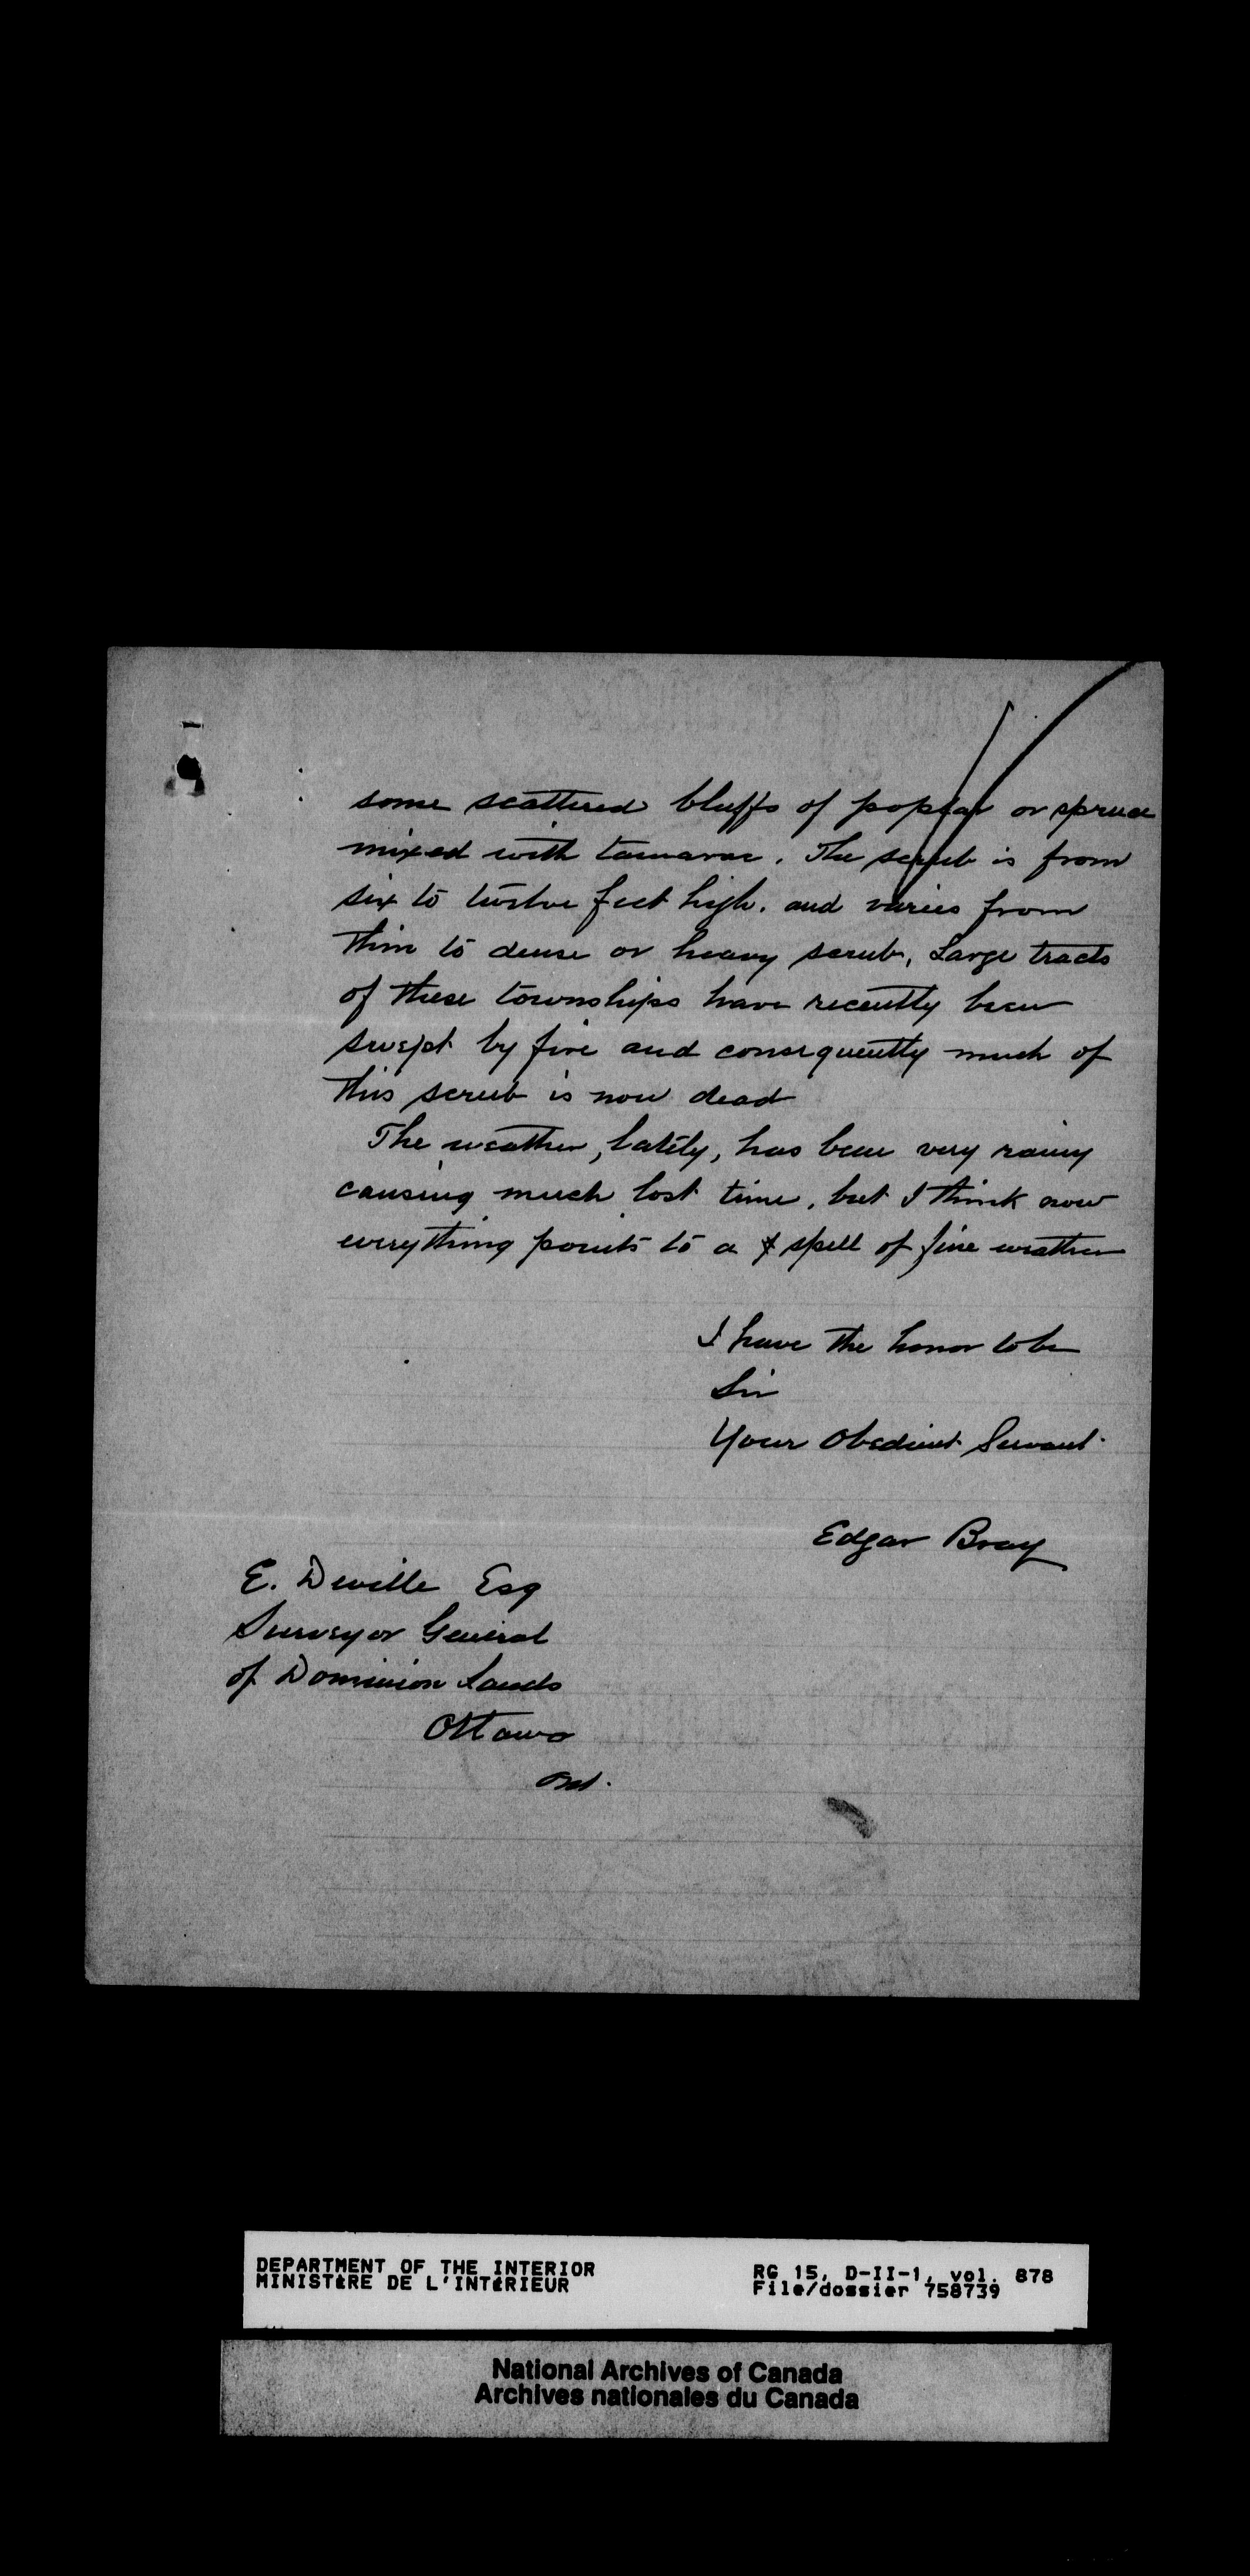 some scattered bluffs of poplar or spruce
mixed with tamarac. The scrub is from
six to twelve feet high. and varies from
thin to dense or heavy scrub, Large tracts
of these townships have recently been
swept by fire and consequently much of
this scrub is now dead
The weather, lately, has been very rainy
causing much lost time, but I think now
everything points to a spell of fine weather
I have the honor to be
Sir
Your Obedient Servant
Edgar Bray
E. Deville Esq
Surveyor General
of Dominion Lands
Ottawa
Ont.
DEPARTMENT OF THE INTERIOR
MINISTÈRE DE L'INTÉRIEUR
RG 15, D-II-1, vol. 878
File/dossier 758739
National Archives of Canada
Archives nationales du Canada